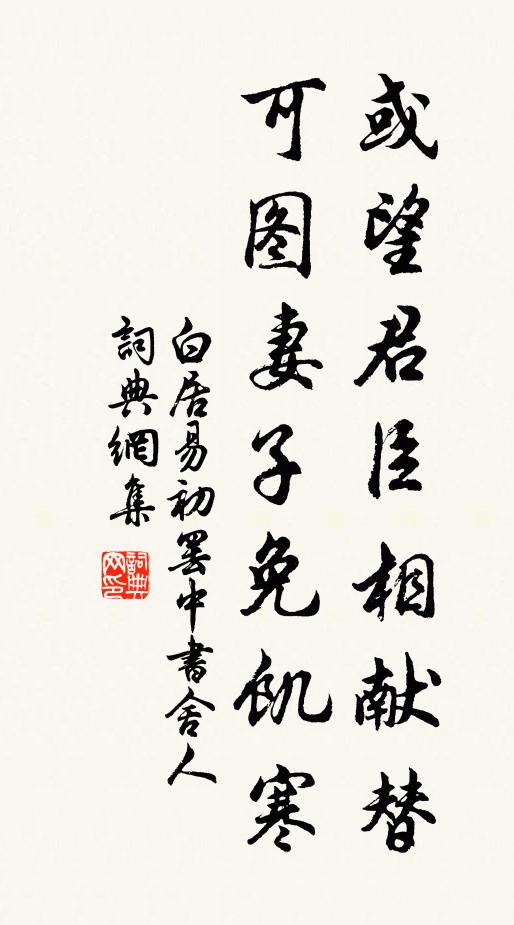 或望君臣相献替
可图妻子免飢寒
白居易初罢中書舍人
詞典網集
詞典网印